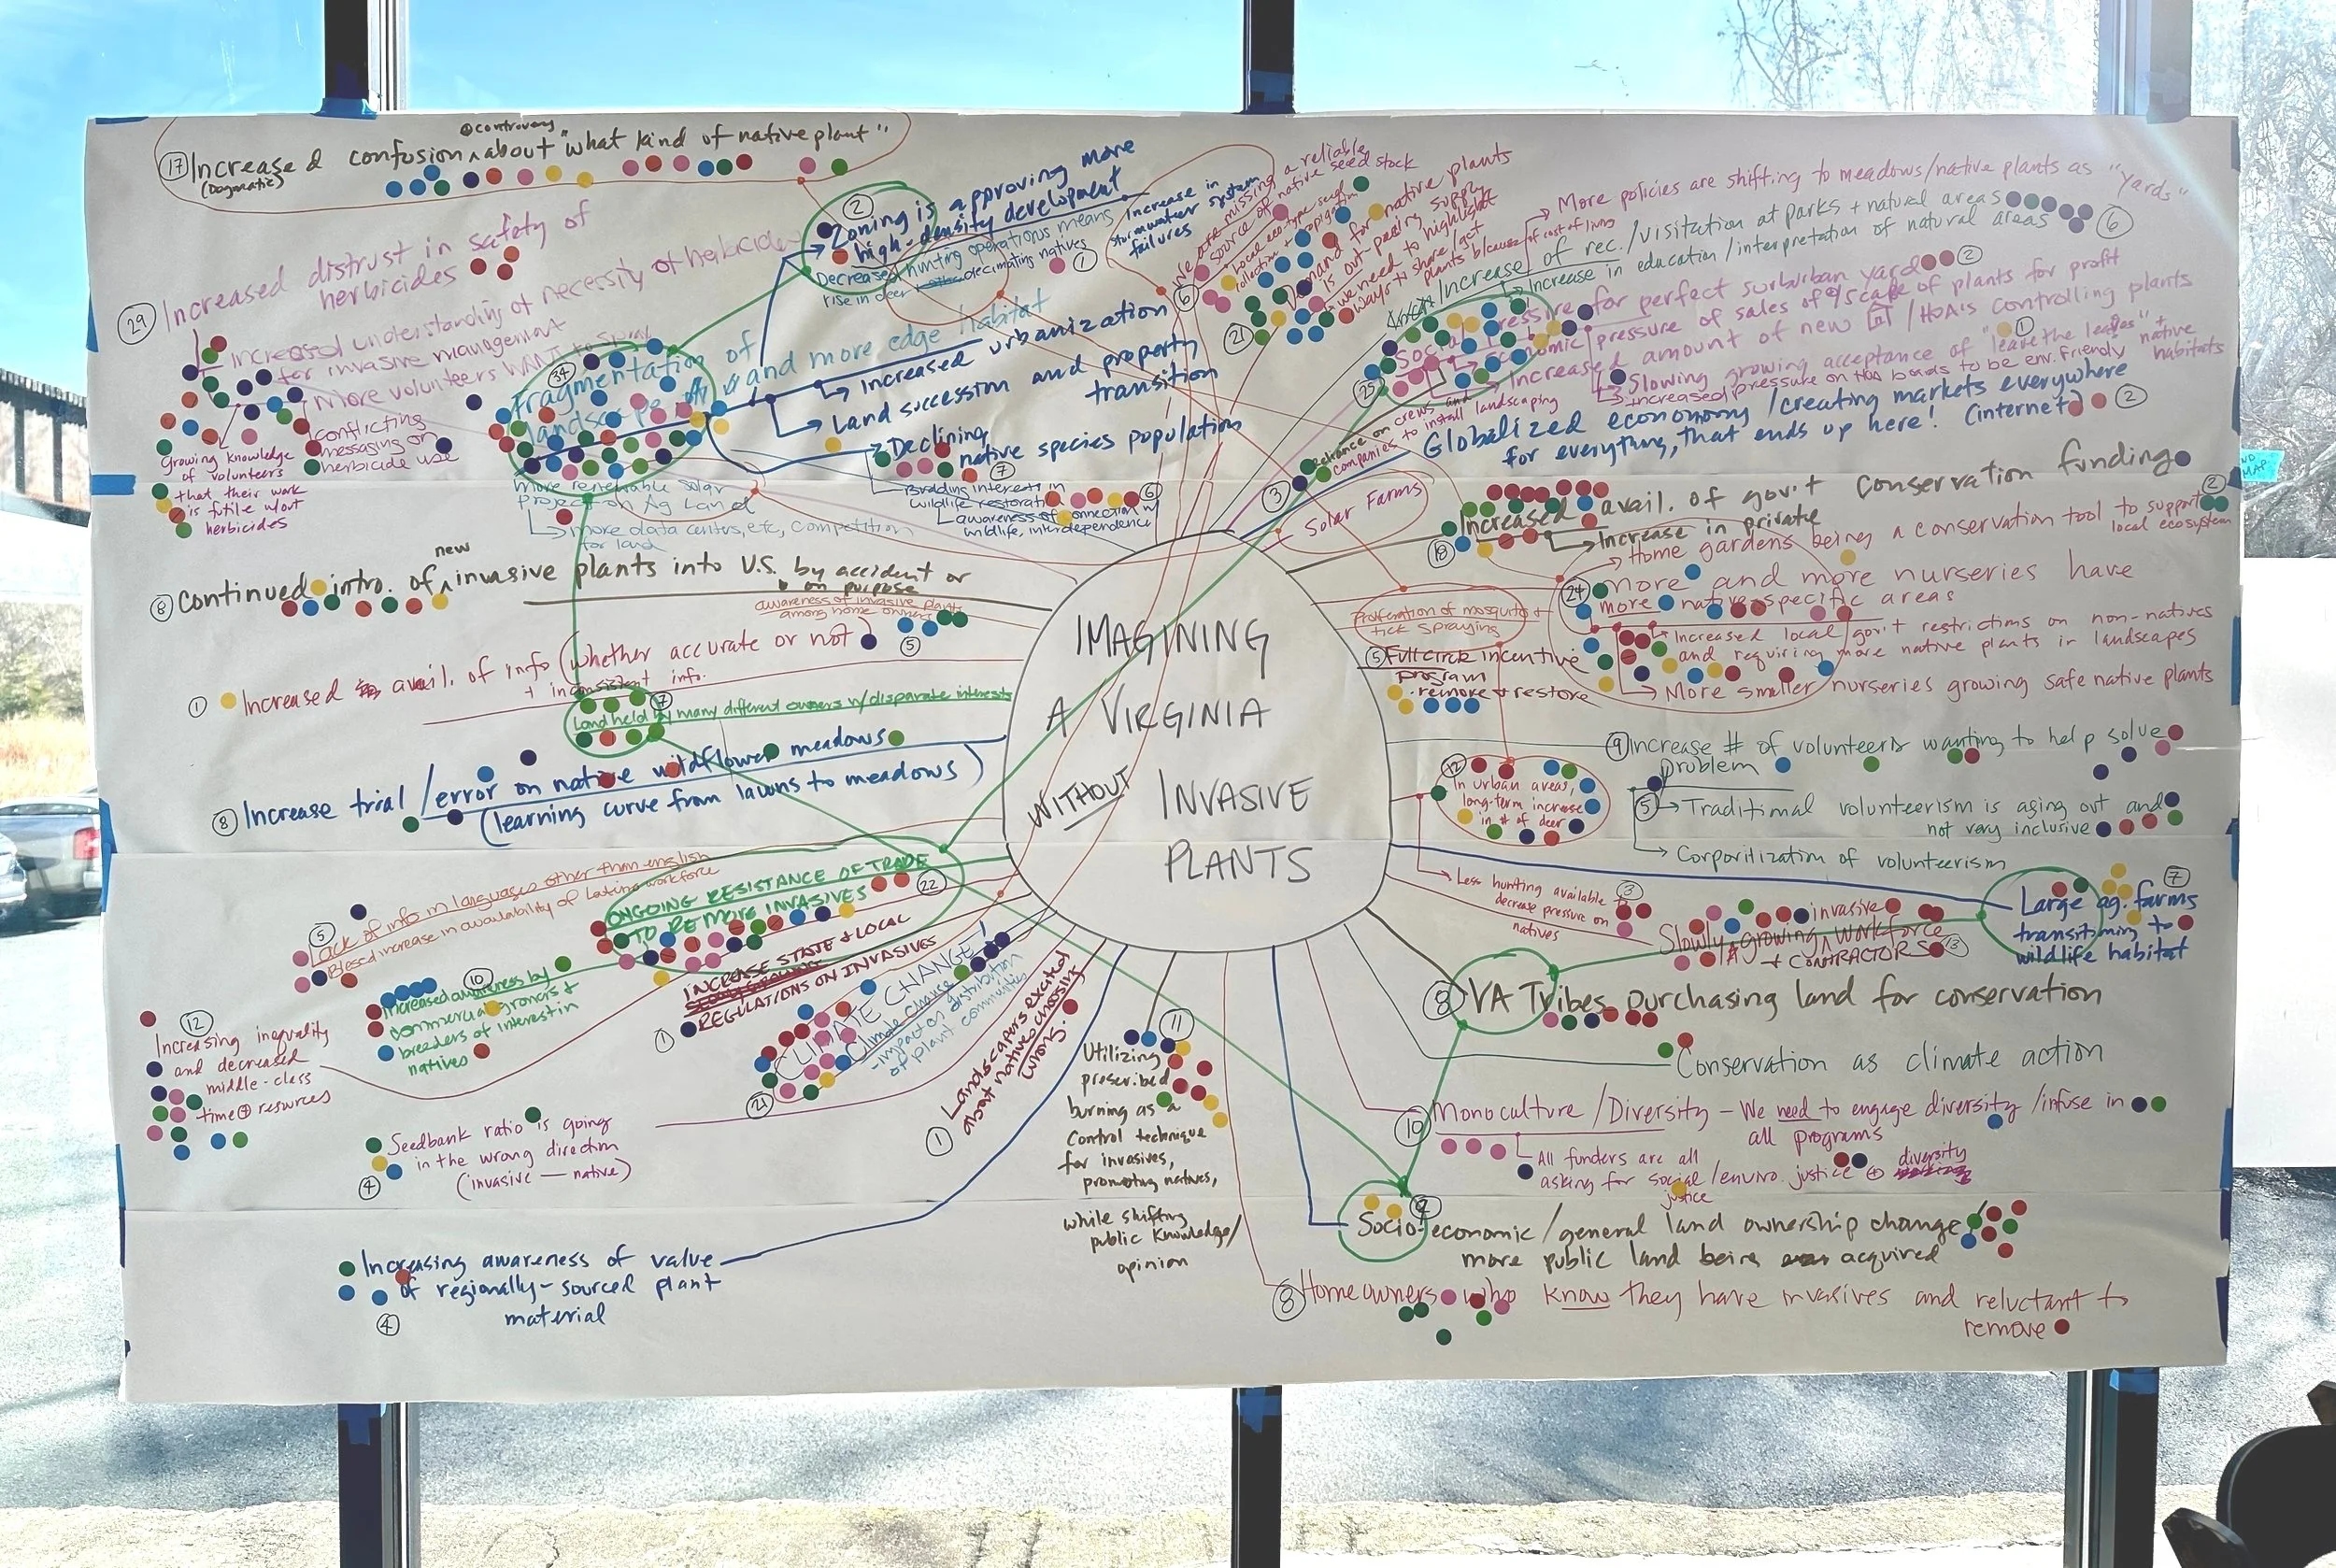 IMAGINING
A VIRGINIA
WITHOUT INVASIVE
PLANTS
controversy
17 Increased confusion ^ about "what kind of native plant"
(Dogmatic)
29 Increased distrust in safety of
herbicides
Increased understanding of necessity of herbicides
for invasive management
More volunteers WANT to spray
conflicting
messaging on
herbicide use
Growing knowledge
of volunteers
that their work
is futile w/out
herbicides
2
Zoning is approving more
high-density development
Increase in
stormwater system
failures
Decreased hunting operations means
rise in deer decimating natives 1
34
Fragmentation of
landscape and more edge habitat
Increased urbanization
Land succession and property
transition
Declining
native species population
7
Birding interests in
wildlife restoration
6
awareness of connection w/
wildlife, interdependence
more renewable solar
project on Ag Land
more data centers, etc, competition
for land
new
8 Continued intro. of ^ invasive plants into U.S. by accident or
on purpose
awareness of invasive plants
among home owners
5
1 Increased avail. of info (whether accurate or not
+ inconsistent info.
7
Land held by many different owners w/ disparate interests
8 Increase trial/error on native wildflower meadows
(learning curve from lawns to meadows)
5
Lack of info in languages other than english
Blessed increase in availability of Latino workforce
ONGOING RESISTANCE OF TRADE 22
TO REMOVE INVASIVES
10
Increased awareness by
commercial growers &
breeders of interest in
natives
INCREASE STATE & LOCAL
1 REGULATIONS ON INVASIVES
12
Increasing inequality
and decreased
middle-class
time & resources
21
CLIMATE CHANGE!
Climate change
-impact on distribution
of plant communities
4 Seedbank ratio is going
in the wrong direction
(invasive — native)
1 Landscapers excited
about natives choosing
wrong.
Increasing awareness of value
of regionally-sourced plant
material
4
11
Utilizing
prescribed
burning as a
control technique
for invasives,
promoting natives,
while shifting
public knowledge/
opinion
6
We are missing a reliable
source of native seed stock
Local eco-type seed
collection + propagation
21
Demand for native plants
is out-pacing supply
we need to highlight
ways to share/get
plants b/cause of cost of living
More policies are shifting to meadows/native plants as "yards"
Increase of rec./visitation at parks + natural areas
Increase in education/interpretation of natural areas 6
25
Social pressure for perfect suburban yard 2
economic pressure of sales of plants for profit
Increased amount of new /HOA's controlling plants
Slowing growing acceptance of "leave the leaves" + native habitats 1
Increased pressure on HOA boards to be env. friendly
3
Reliance on crews and
companies to install landscaping
Globalized economy/creating markets everywhere
for everything, that ends up here! (internet) 2
Solar Farms
18
Increased avail. of gov't conservation funding
Increase in private
2
Home gardens being a conservation tool to support
local ecosystem
24
more and more nurseries have
more native-specific areas
Increased local gov't restrictions on non-natives
and requiring more native plants in landscapes
More smaller nurseries growing safe native plants
Proliferation of mosquito +
tick spraying
5 Full circle incentive
program
- remove + restore
9 Increase # of volunteers wanting to help solve
problem
5 Traditional volunteerism is aging out and
not very inclusive
Corporitization of volunteerism
12
In urban areas,
long-term increase
in # of deer
Less hunting available 3
decrease pressure on
natives
invasive
Slowly growing ^ workforce
+ CONTRACTORS 13
7
Large ag. farms
transitioning to
wildlife habitat
8 VA Tribes purchasing land for conservation
Conservation as climate action
10 Monoculture/Diversity - We need to engage diversity/infuse in
all programs
All funders are all
asking for social/enviro. justice + diversity
justice
12
Socio-economic/general land ownership change
more public land being acquired
8 Homeowners who know they have invasives and reluctant to
remove